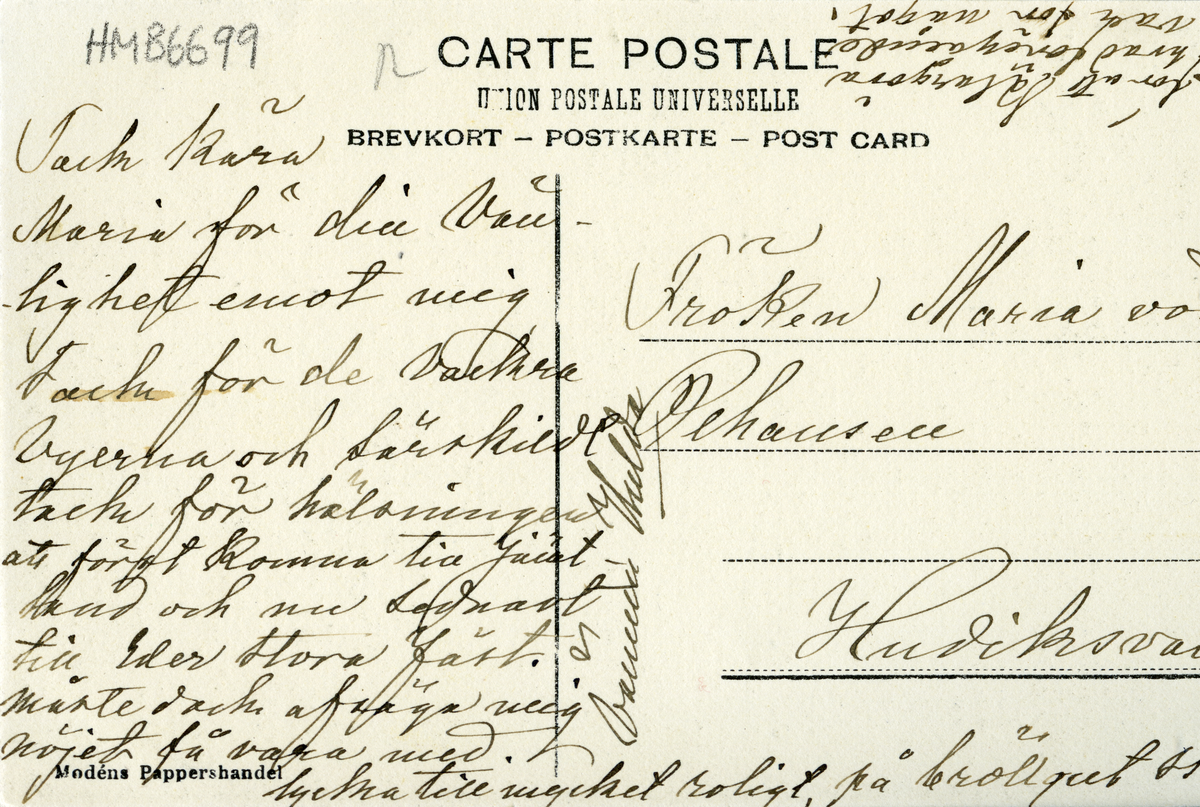 HMB6699
CARTE POSTALE
UNION POSTALE UNIVERSELLE
BREVKORT – POSTKARTE – POST CARD
Tack kära
Maria för din Vän-
-lighet emot mig
Tack för de Vackra
Vyerna och särskildt
tack för hälsningen
att först komma till Jämt
land och nu sednast
till Eder stora fäst.
måste dock afsäga mig
nöjet få vara med.
lycka till mycket roligt, på bröllopet
Vännen Hulda
Fröken Maria vo
Pehansen
Hudiksva
för att
hvad
vad för något.
Modéns Pappershandel